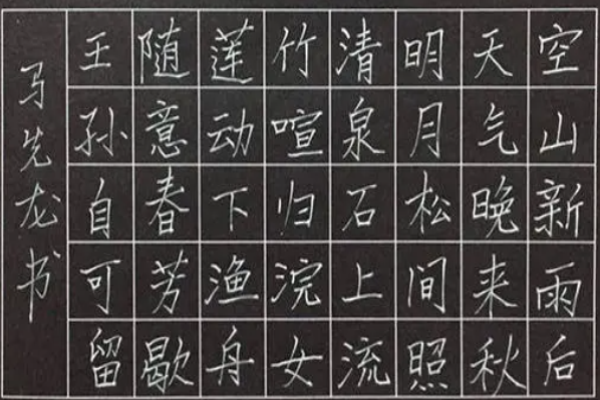 空山新雨后
天气晚来秋
明月松间照
清泉石上流
竹喧归浣女
莲动下渔舟
随意春芳歇
王孙自可留
马先龙书